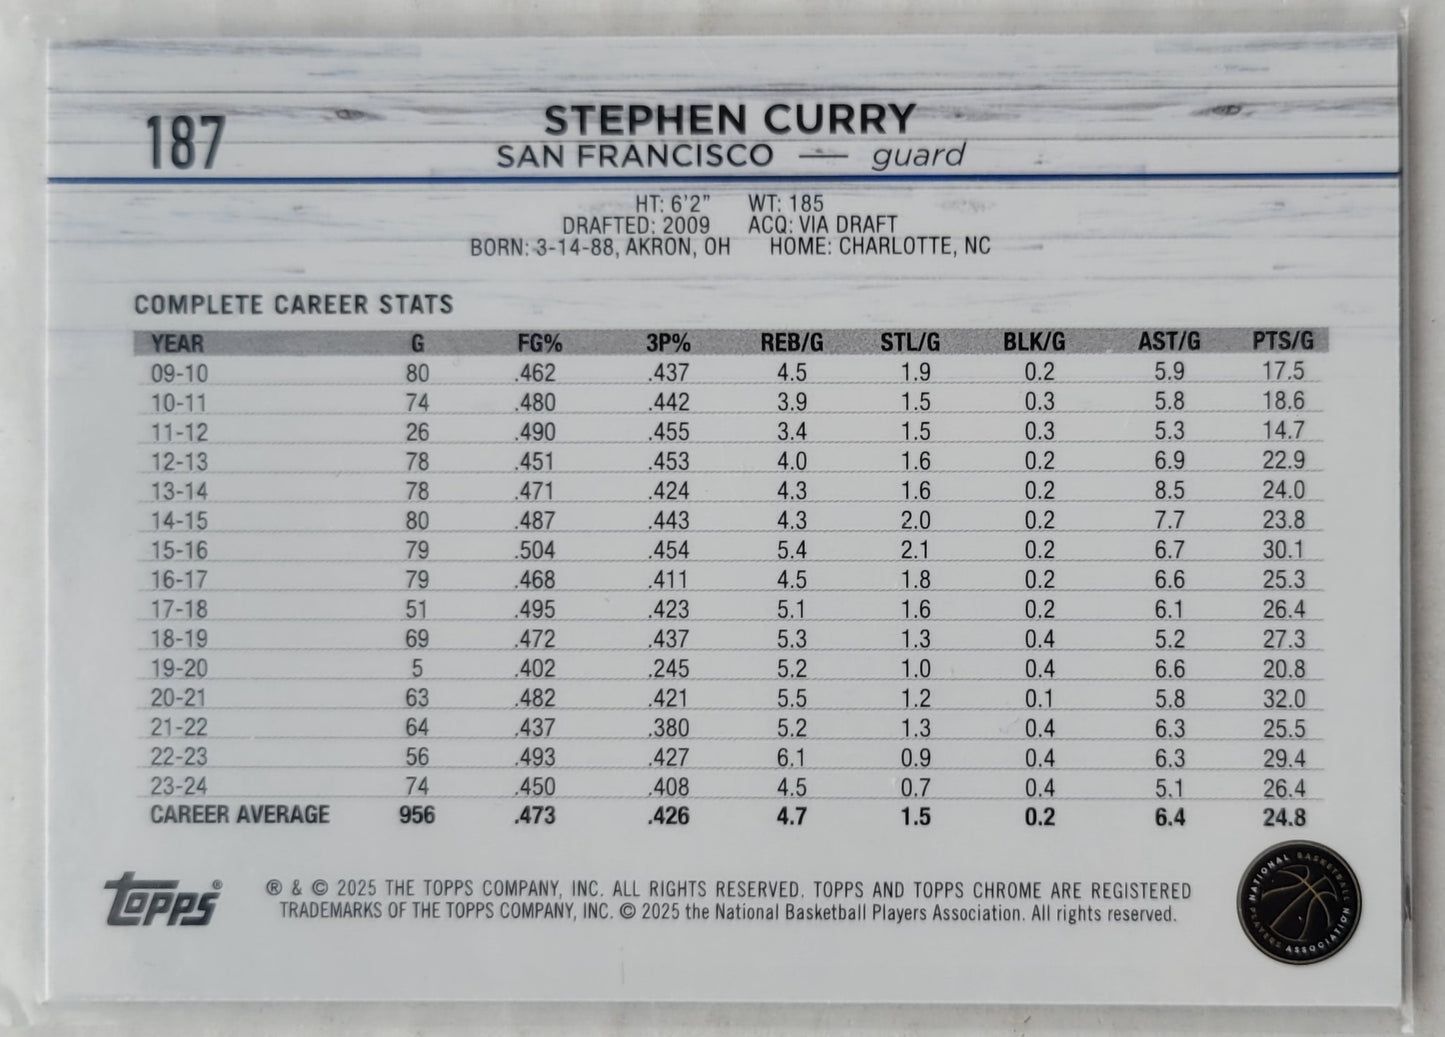 187
STEPHEN CURRY
SAN FRANCISCO — guard
HT: 6'2" WT: 185
DRAFTED: 2009 ACQ: VIA DRAFT
BORN: 3-14-88, AKRON, OH HOME: CHARLOTTE, NC
COMPLETE CAREER STATS
YEAR G FG% 3P% REB/G STL/G BLK/G AST/G PTS/G
09-10 80 .462 .437 4.5 1.9 0.2 5.9 17.5
10-11 74 .480 .442 3.9 1.5 0.3 5.8 18.6
11-12 26 .490 .455 3.4 1.5 0.3 5.3 14.7
12-13 78 .451 .453 4.0 1.6 0.2 6.9 22.9
13-14 78 .471 .424 4.3 1.6 0.2 8.5 24.0
14-15 80 .487 .443 4.3 2.0 0.2 7.7 23.8
15-16 79 .504 .454 5.4 2.1 0.2 6.7 30.1
16-17 79 .468 .411 4.5 1.8 0.2 6.6 25.3
17-18 51 .495 .423 5.1 1.6 0.2 6.1 26.4
18-19 69 .472 .437 5.3 1.3 0.4 5.2 27.3
19-20 5 .402 .245 5.2 1.0 0.4 6.6 20.8
20-21 63 .482 .421 5.5 1.2 0.1 5.8 32.0
21-22 64 .437 .380 5.2 1.3 0.4 6.3 25.5
22-23 56 .493 .427 6.1 0.9 0.4 6.3 29.4
23-24 74 .450 .408 4.5 0.7 0.4 5.1 26.4
CAREER AVERAGE 956 .473 .426 4.7 1.5 0.2 6.4 24.8
Topps®
® & © 2025 THE TOPPS COMPANY, INC. ALL RIGHTS RESERVED. TOPPS AND TOPPS CHROME ARE REGISTERED
TRADEMARKS OF THE TOPPS COMPANY, INC. © 2025 the National Basketball Players Association. All rights reserved.
NATIONAL BASKETBALL PLAYERS ASSOCIATION